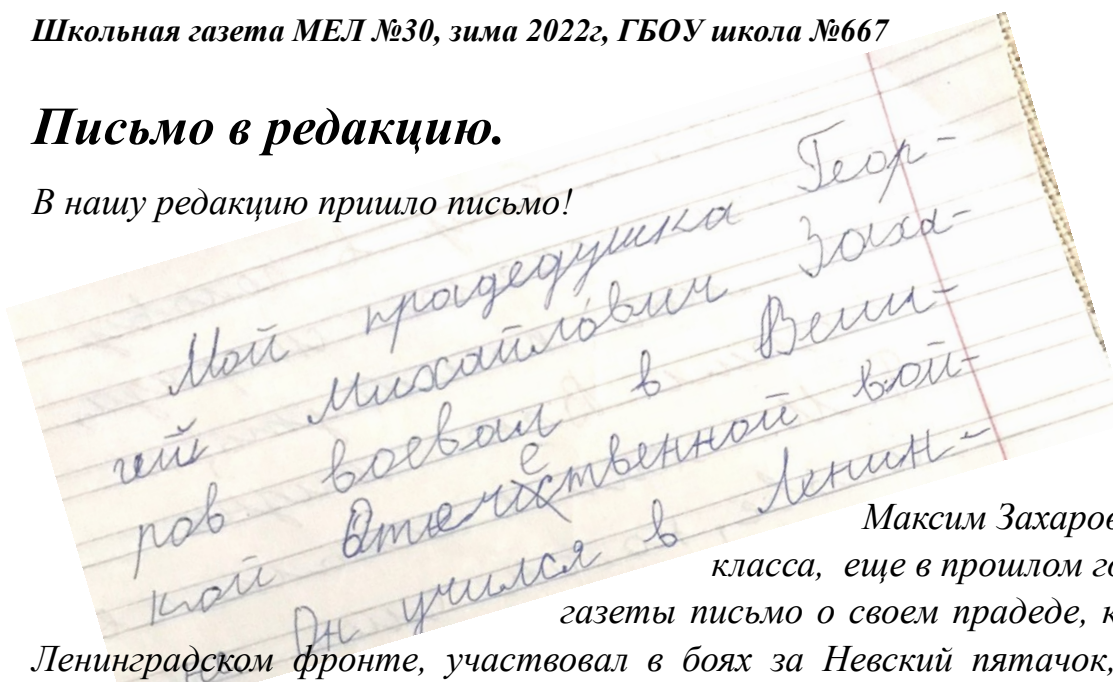 Школьная газета МЕЛ №30, зима 2022г, ГБОУ школа №667
Письмо в редакцию.
В нашу редакцию пришло письмо!
Мой прадедушка Геор-
гий Михайлович Заха-
ров воевал в Вели-
кой Отечественной вой-
не Он учился в Ленин-
Максим Захаров
класса, еще в прошлом го
газеты письмо о своем прадеде, к
Ленинградском фронте, участвовал в боях за Невский пятачок,